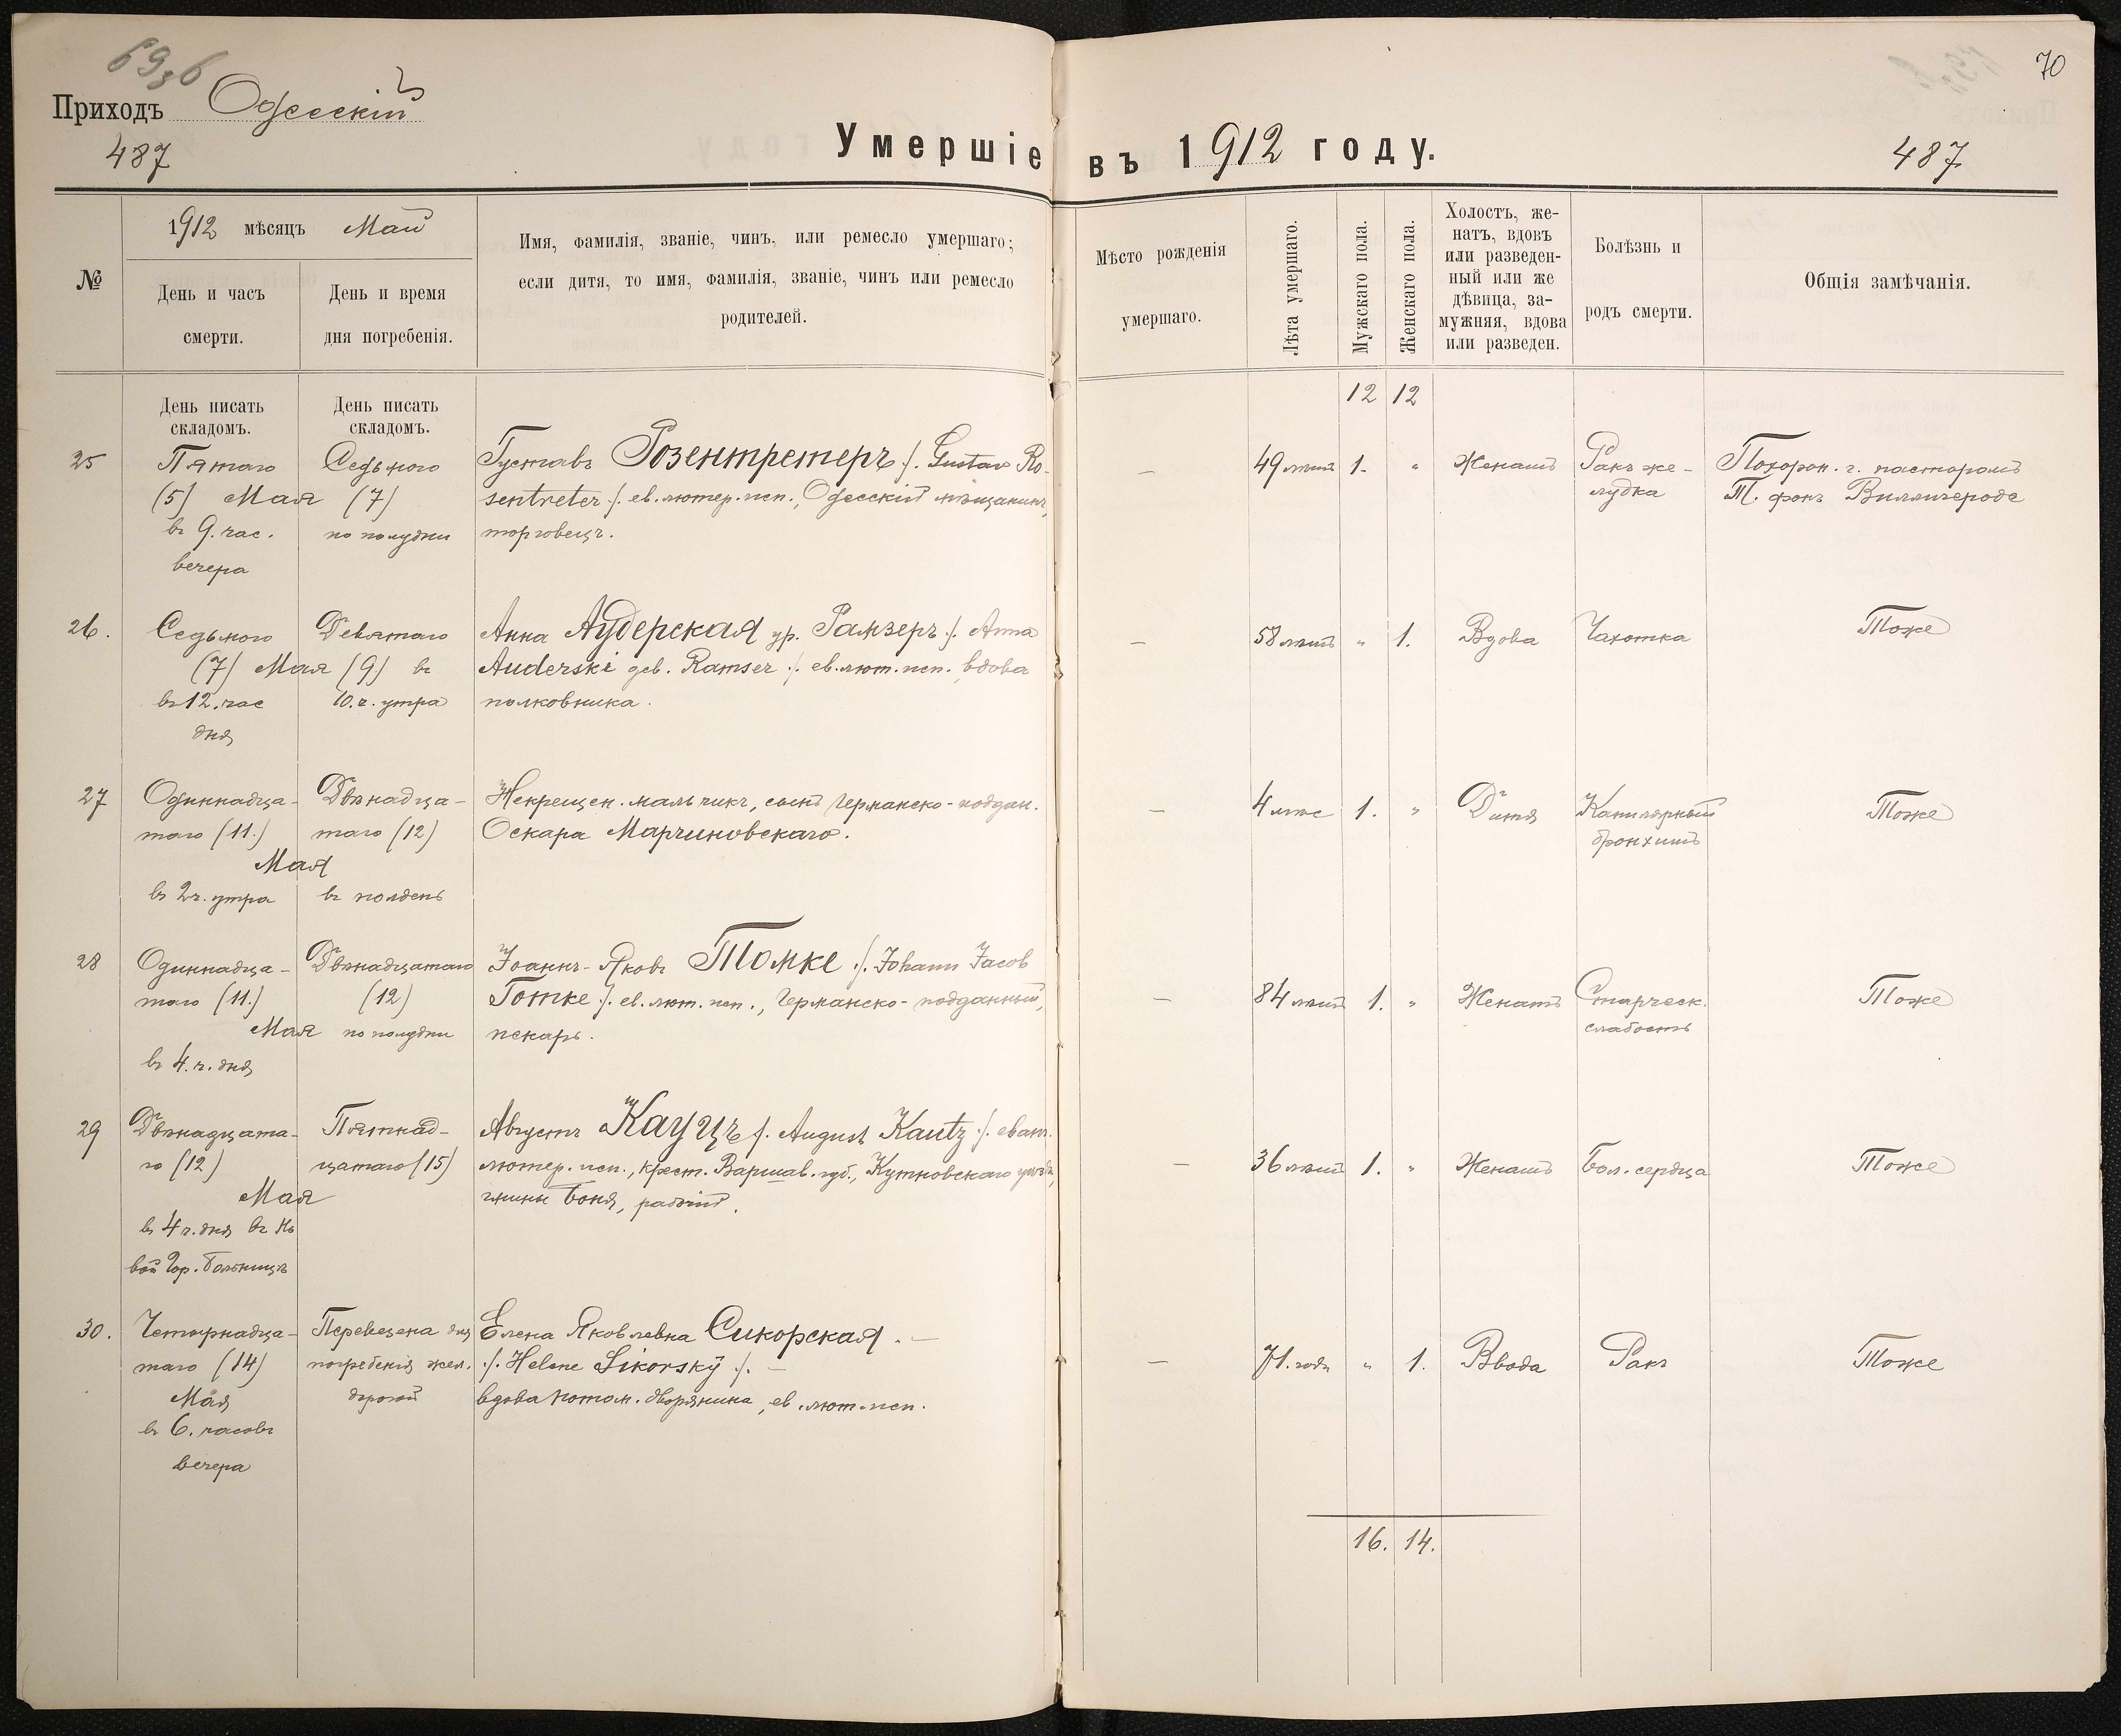 69 об
Приходъ Одесскій
487
Умершіе въ 1912 году.
70
487
№
1912 мѣсяцъ Май
День и часъ
смерти.
День и время
дня погребенія.
Имя, фамилія, званіе, чинъ, или ремесло умершаго;
если дитя, то имя, фамилія, званіе, чинъ или ремесло
родителей.
Мѣсто рожденія
умершаго.
Лѣта умершаго.
Мужскаго пола.
Женскаго пола.
Холостъ, же-
натъ, вдовъ
или разведен-
ный или же
дѣвица, за-
мужняя, вдова
или разведен.
Болѣзнь и
родъ смерти.
Общія замѣчанія.
День писать
складомъ.
День писать
складомъ.
12 12
25
Пятаго
(5) Мая
въ 9. час.
вечера
Седьмого
(7)
по полудни
Густавъ Розентретеръ ./. Gustav Ro-
sentreter ./. ев. лютер. исп., Одесскій мѣщанинъ,
торговецъ.
—
49 лѣтъ
1.
"
Женатъ
Ракъ же-
лудка
Похорон. г. пасторомъ
Т. фонъ Виллигероде
26.
Седьмого
(7) Мая
въ 12. час
дня
Девятаго
(9) въ
10. ч. утра
Анна Аудерская ур. Рамзеръ ./. Anna
Auderski geb. Ramser ./. ев. лют. исп. вдова
полковника.
—
58 лѣтъ
"
1.
Вдова
Чахотка
Тоже
27
Одиннадца-
таго (11.)
Мая
въ 2 ч. утра
Двѣнадца-
таго (12)
въ полдень
Некрещен. мальчикъ, сынъ Германско-поддан.
Оскара Марциновскаго.
—
4 мѣс
1.
"
Дитя
Капилярный
бронхитъ
Тоже
28
Одиннадца-
таго (11.)
Мая
въ 4. ч. дня
Двѣнадцатаго
(12)
по полудни
Іоаннъ-Яковъ Томке ./. Johann Jacob
Tomke ./. ев. лют. исп., Германско-подданный,
пекарь.
—
84 лѣтъ
1.
"
Женатъ
Старческ.
слабость
Тоже
29
Двѣнадцата-
го (12)
Мая
въ 4 ч. дня въ Но
вой Гор. Больницѣ
Пятнад-
цатаго (15)
Августъ Кауцъ ./. August Kautz ./. еванг.
лютер. исп., крест. Варшав. губ., Кутновскаго уѣзда,
гмины Боня, рабочій.
—
36 лѣтъ
1.
"
Женатъ
Бол. сердца
Тоже
30.
Четырнадца-
таго (14)
Мая
въ 6. часовъ
вечера
Перевезена для
погребенія жел.
дорогой
Елена Яковлевна Сикорская. —
./. Helene Sikorsky ./. —
вдова потом. дворянина, ев. лют. исп.
—
71. года
"
1.
Ввода
Ракъ
Тоже
16. 14.